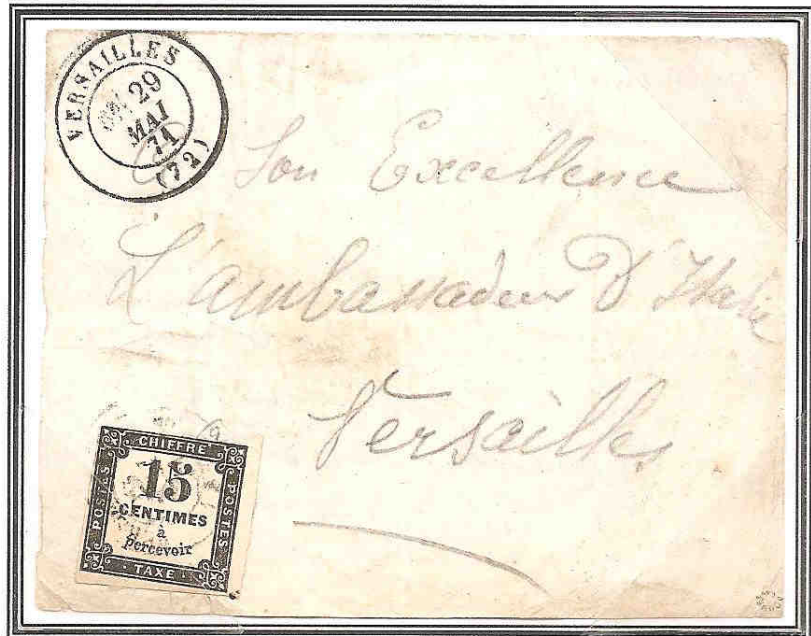 VERSAILLES
29
MAI
71
(72)
Son Excellence
L'ambassadeur D'Italie
Versailles
CHIFFRE
POSTES
POSTES
15
CENTIMES
à
percevoir
TAXE